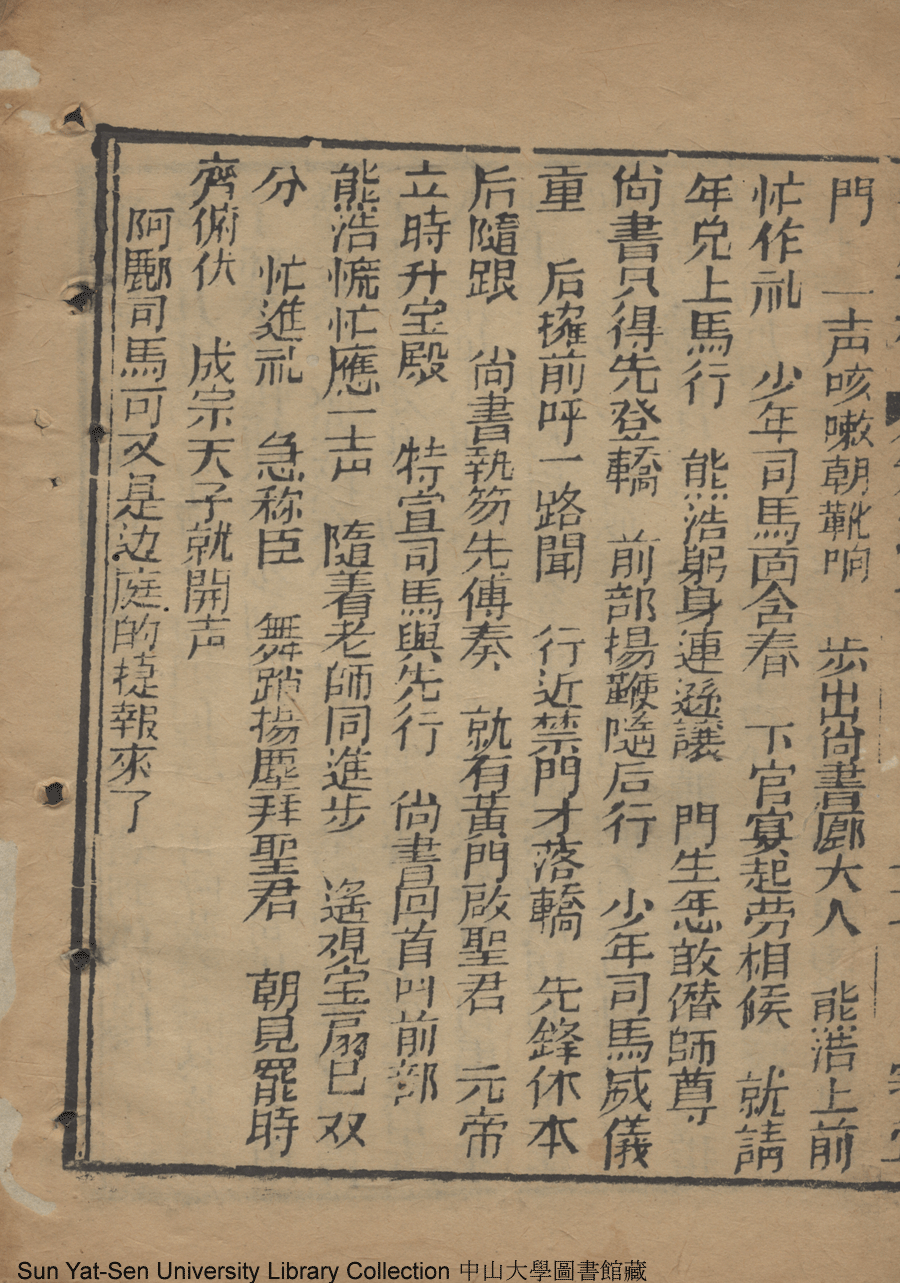 門　一声咳嗽朝靴响　步出尚書酈大人　熊浩上前
忙作礼　少年司馬面含春　下官宴起劳相候　就請
年兄上馬行　熊浩躬身連遜讓　門生怎敢僭師尊
尚書只得先登轎　前部揚鞭随后行　少年司馬威儀
重　后擁前呼一路聞　行近禁門才落轎　先鋒休本
后隨跟　尚書執笏先傳奏　就有黃門啟聖君　元帝
立時升宝殿　特宣司馬與先行　尚書回首叫前部
熊浩慌忙應一声　隨着老師同進步　遥观宝扇已双
分　忙進礼　急称臣　舞蹈揚塵拜聖君　朝見罷時
齊俯伏　成宗天子就開声
阿酈司馬可又是边庭的捷報來了
Sun Yat-Sen University Library Collection 中山大學圖書館藏